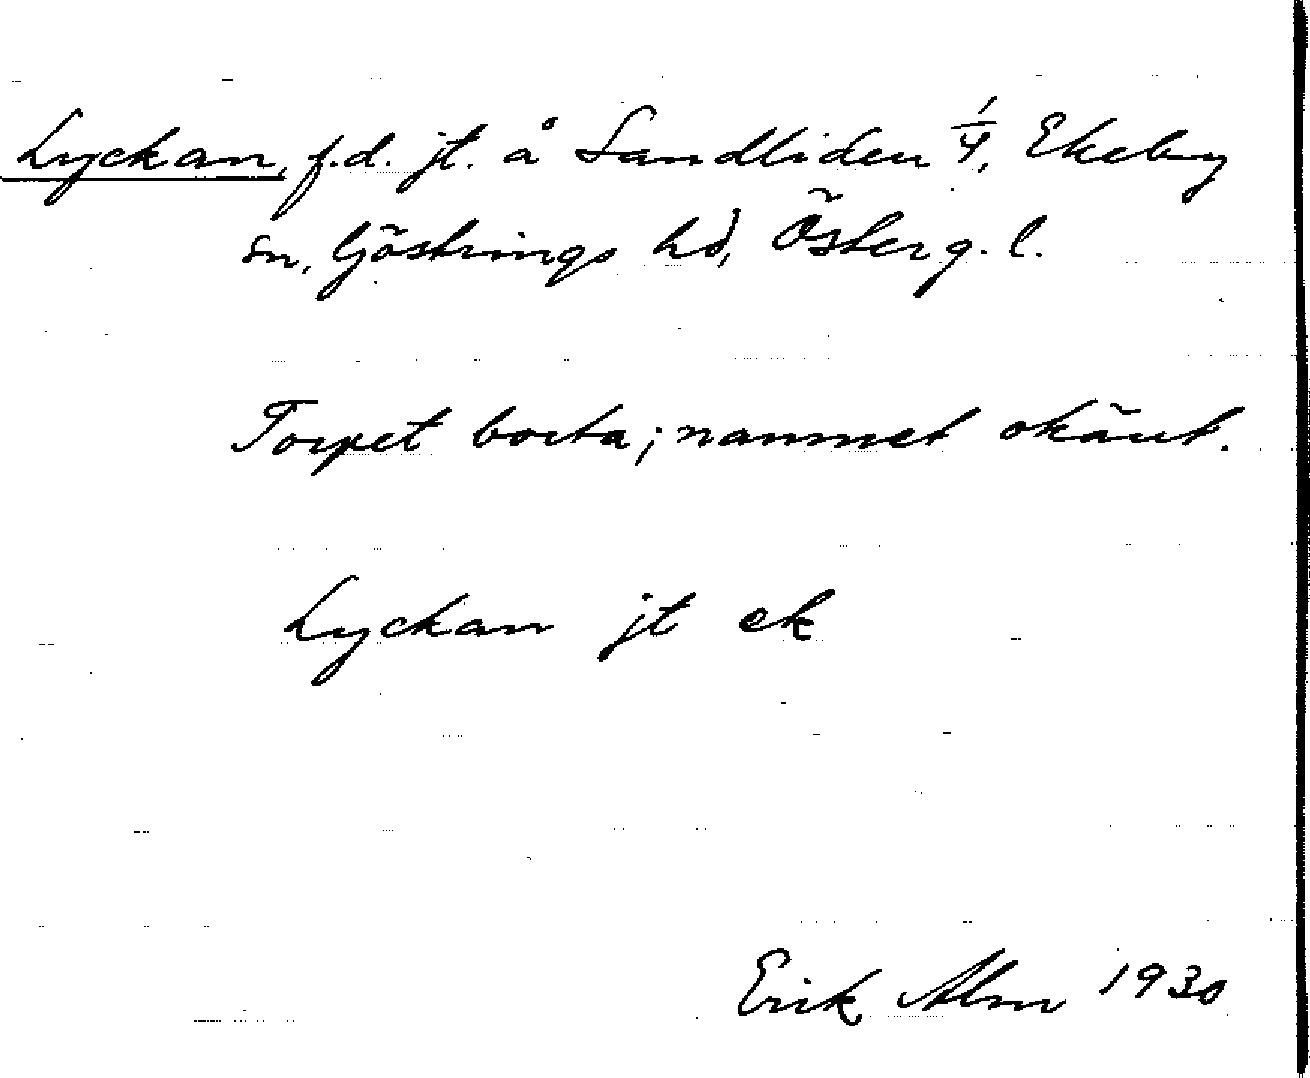 Lyckan, f.d. jt. å Sandliden 1/4, Ekeby
sn, Göstrings hd, Österg. l.
Torpet borta; namnet okänt.
Lyckan jt ek
Erik Alm 1930